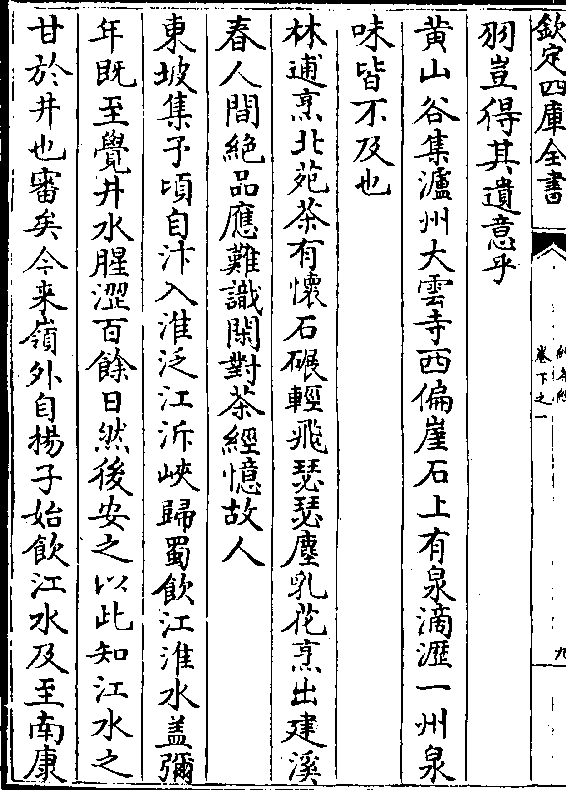 欽定四庫全書
卷下之一
九
羽豈得其遺意乎
黄山谷集瀘州大雲寺西偏崖石上有泉滴瀝一州泉
味皆不及也
林逋烹北苑茶有懷石碾輕飛瑟瑟塵乳花烹出建溪
春人間絶品應難識閑對茶經憶故人
東坡集予頃自汴入淮泛江泝峽歸蜀飲江淮水盖彌
年既至覺井水腥澀百餘日然後安之以此知江水之
甘於井也審矣今来嶺外自揚子始飲江水及至南康